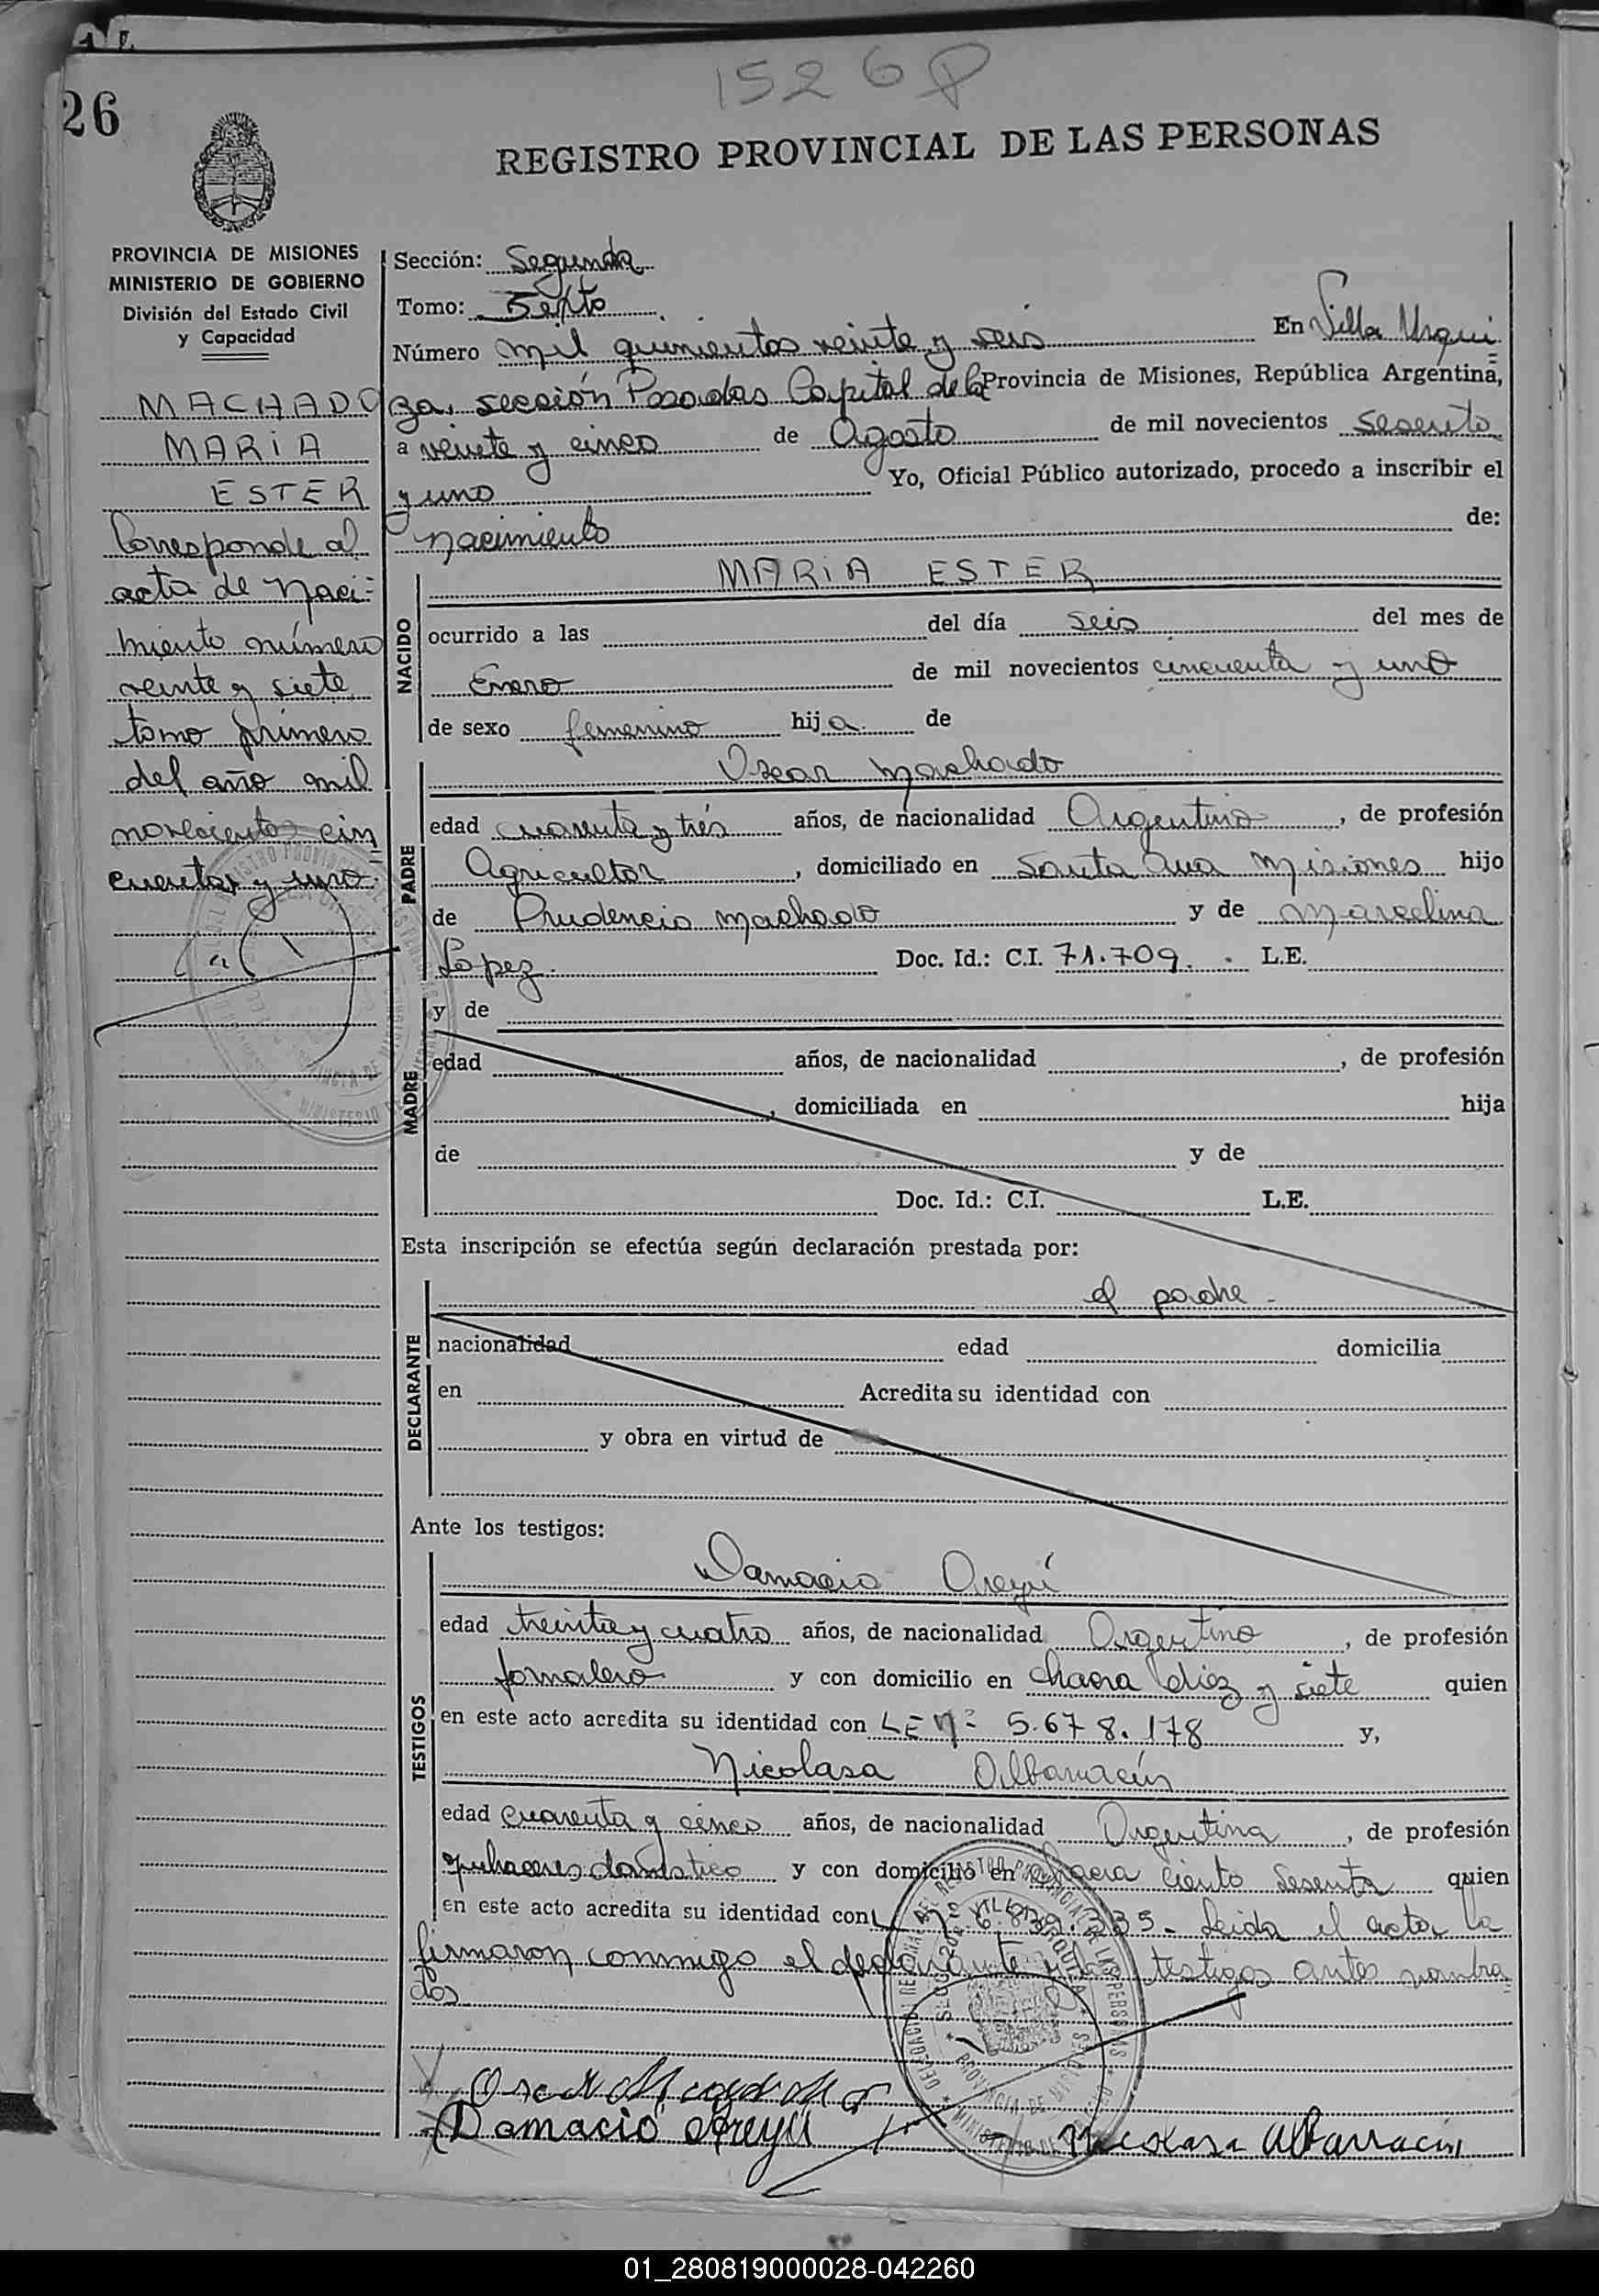 1526
26
REGISTRO PROVINCIAL DE LAS PERSONAS
PROVINCIA DE MISIONES
MINISTERIO DE GOBIERNO
División del Estado Civil
y Capacidad
MACHADO
MARIA
ESTER
Corresponde al
acta de Naci=
miento número
veinte y siete
tomo primero
del año mil
novecientos cin
cuenta y uno.
Sección: Segunda
Tomo: Sexto
Número mil quinientos veinte y seis En Villa Urqui=
za, sección Posadas Capital de la Provincia de Misiones, República Argentina,
a veinte y cinco de Agosto de mil novecientos sesenta
y uno Yo, Oficial Público autorizado, procedo a inscribir el
nacimiento de:
NACIDO
MARIA ESTER
ocurrido a las del día seis del mes de
Enero de mil novecientos cincuenta y uno
de sexo femenino hija de
PADRE
Oscar Machado
edad cuarenta y trés años, de nacionalidad Argentino, de profesión
Agricultor, domiciliado en Santa Ana Misiones hijo
de Prudencio Machado y de Marcelina
Lopez. Doc. Id.: C.I. 71.709. L.E.
MADRE
y de
edad años, de nacionalidad , de profesión
, domiciliada en hija
de y de
Doc. Id.: C.I. L.E.
Esta inscripción se efectúa según declaración prestada por:
DECLARANTE
el padre -
nacionalidad edad domicilia
en Acredita su identidad con
y obra en virtud de
Ante los testigos:
TESTIGOS
Damacio
edad treinta y cuatro años, de nacionalidad Argentino, de profesión
Jornalero y con domicilio en chacra diéz y siete quien
en este acto acredita su identidad con L E Nº 5.678.178 y,
Nicolasa Albarracín
edad cuarenta y cinco años, de nacionalidad Argentina, de profesión
quehaceres doméstico y con domicilio en chacra ciento sesenta quien
en este acto acredita su identidad con 335.- Leida el acta la
firmaron conmigo el declarante y los testigos antes nombra
dos
Oscar Machado
Damacio
Nicolasa Albarracin
01_280819000028-042260